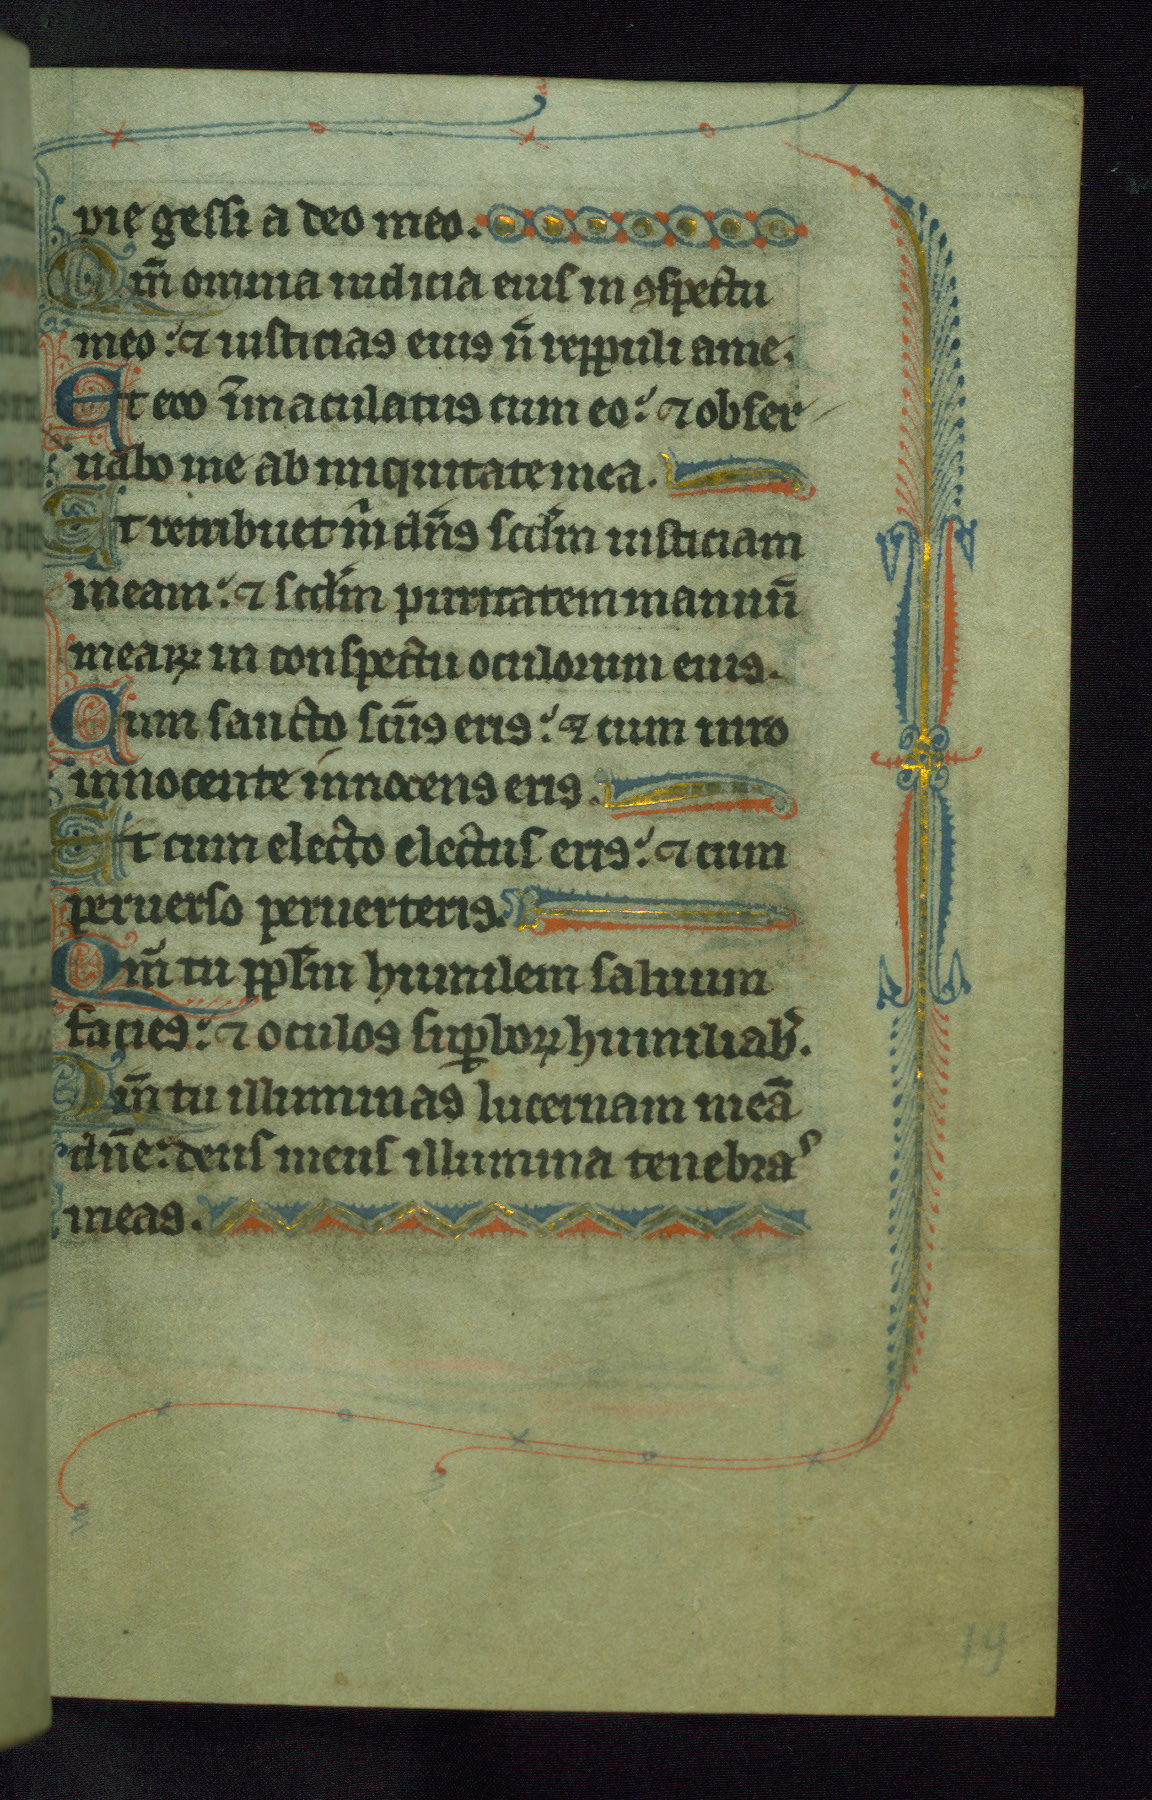 pie gessi a deo meo.
Qm̄ omnia iudicia eius in ꝯspectu
meo: ⁊ iusticias eius n̄ reppuli a me.
Et ero īmaculatus cum eo: ⁊ obser
uabo me ab iniquitate mea.
Et retribuet m̄ dn̄s scd̄m iusticiam
meam: ⁊ scd̄m puritatem manuū
meaꝝ in conspectu oculorum eius.
Cum sancto scūs eris: ⁊ cum uiro
innocente innocens eris.
Et cum electo electus eris: ⁊ cum
peruerso peruerteris.
Qm̄ tu ppl̄m humilem saluum
facies: ⁊ oculos suꝑboꝝ humiliab̉.
Qm̄ tu illuminas lucernam meā
dn̄e: deus meus illumina tenebras
meas.
19